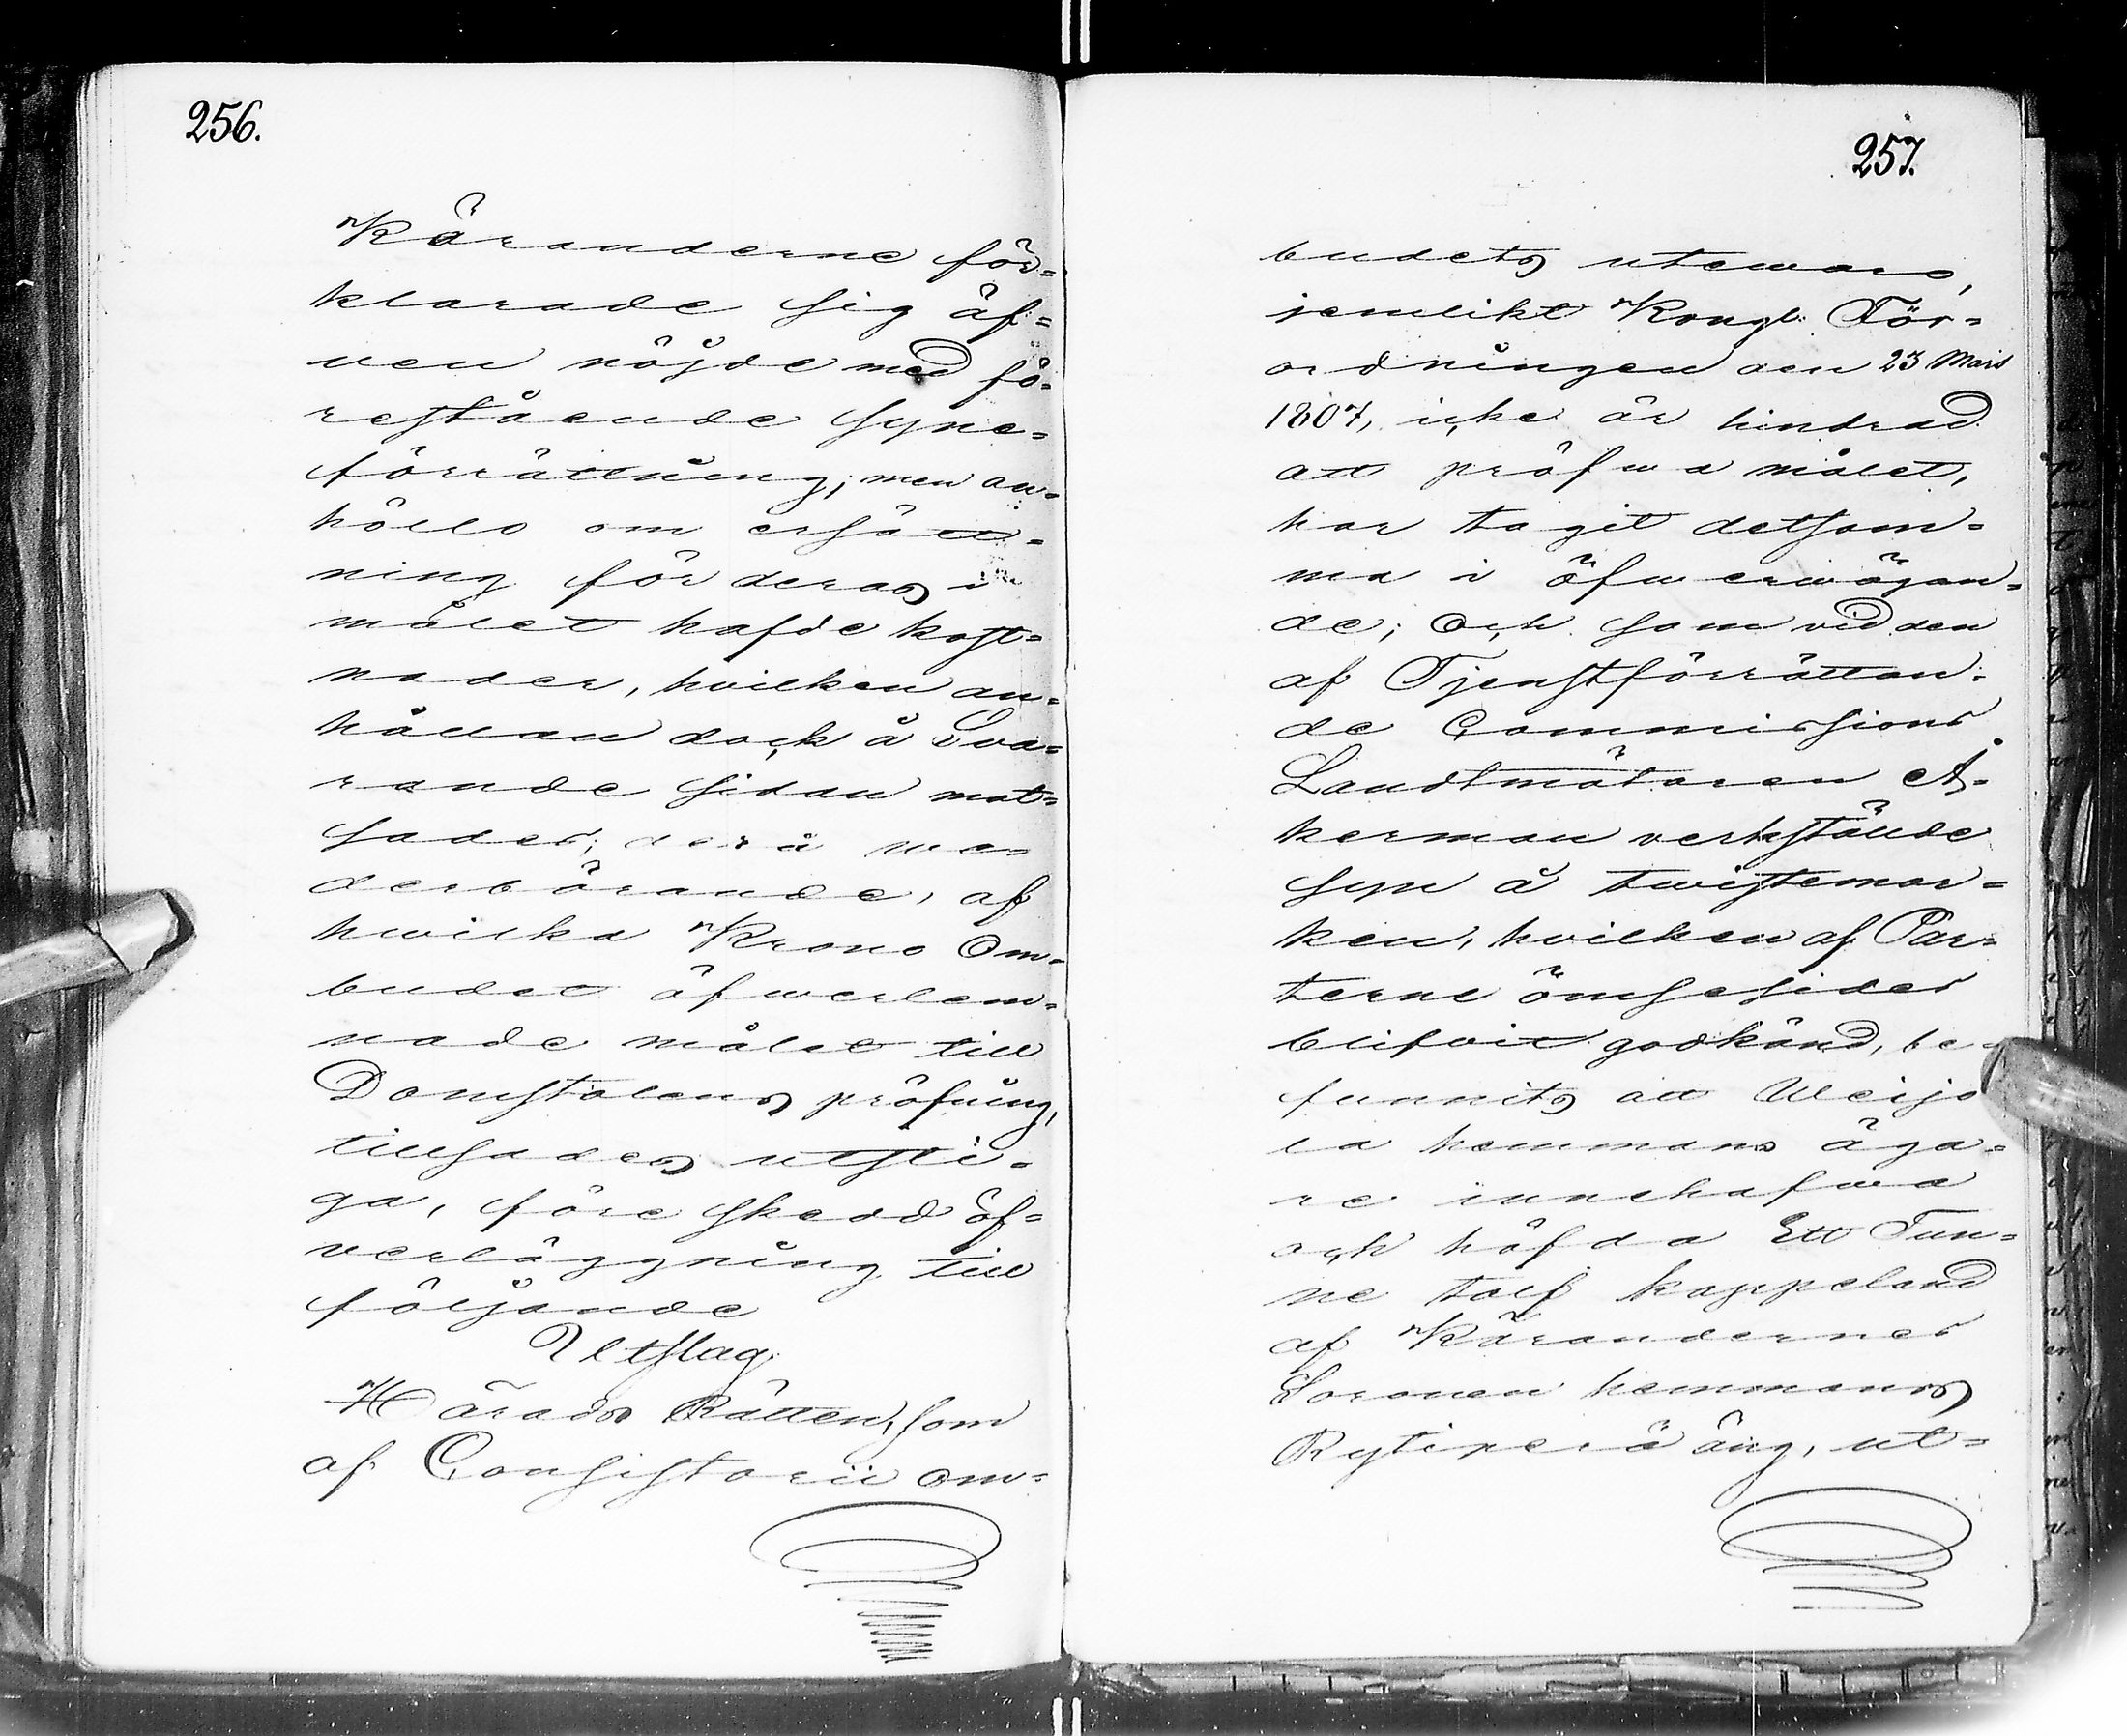 256.
Käranderne för=
klarade sig äf=
ven nöjde med fö=
restående syne=
förrättning; men an=
höllo om ersätt=
ning för deras i
målet hafde kost=
nader, hvilken an=
hållan dock å Swa=
rande sidan mot=
sades; derå we=
derbörande, af
hwilka Krono Om=
budet öfwerlem=
nade målet till
Domstolens pröfning,
tillsades utsti=
ga, före skedd öf=
verläggning till
följande
Utslag:
Härads Rätten, som
af Consistorii om=
257.
budets utewaro,
jemlikt Kongl: För=
ordningen den 23 Mars
1807, icke är hindrad
att pröfwa målet,
har tagit detsam=
ma i öfwerwägan=
de; Och som vid den
af Tjenstförrättan=
de Commissions
Landtmätaren Å=
kerman verkstälde
syn å twistemar=
ken, hvilken af Par=
terne ömsesides
blifvit godkänd, be=
funnits att Uleijo
la hemmans äga=
re innehafwa
och häfda Ett Tun=
ne tolf kappeland
af Kärandernes
Soronen hemmans
Rytiperä äng, ut=